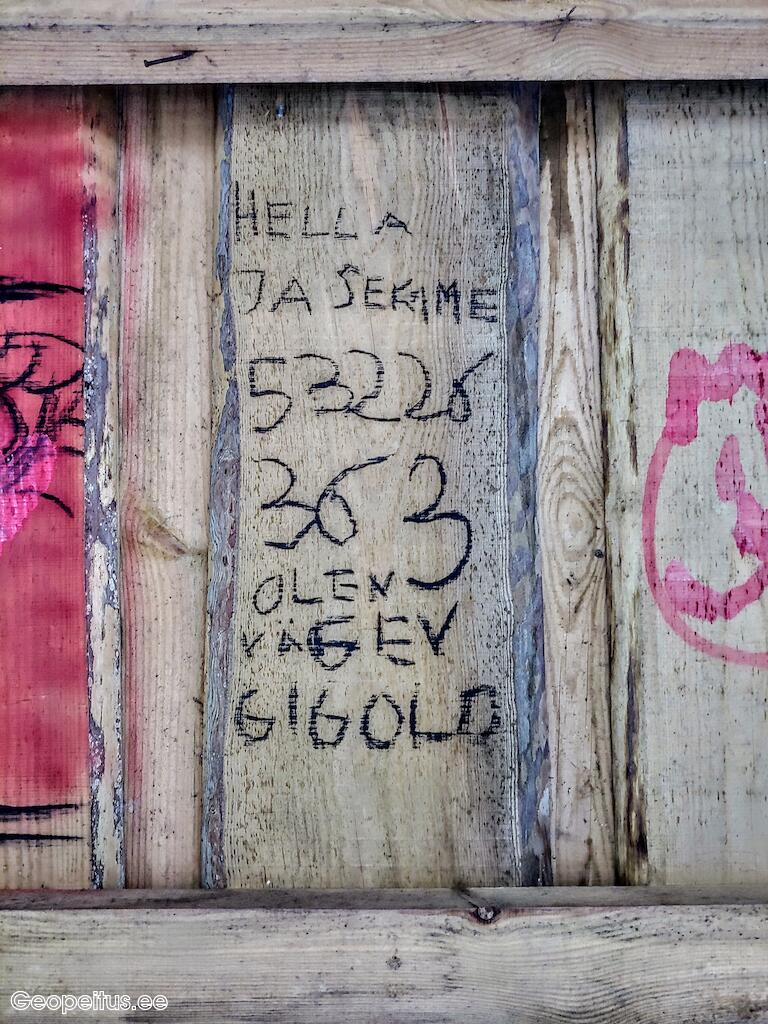 HELLA
JA SEKIME
53226
363
OLEN
VÄGEV
GIGOLO
Geopeitus.ee